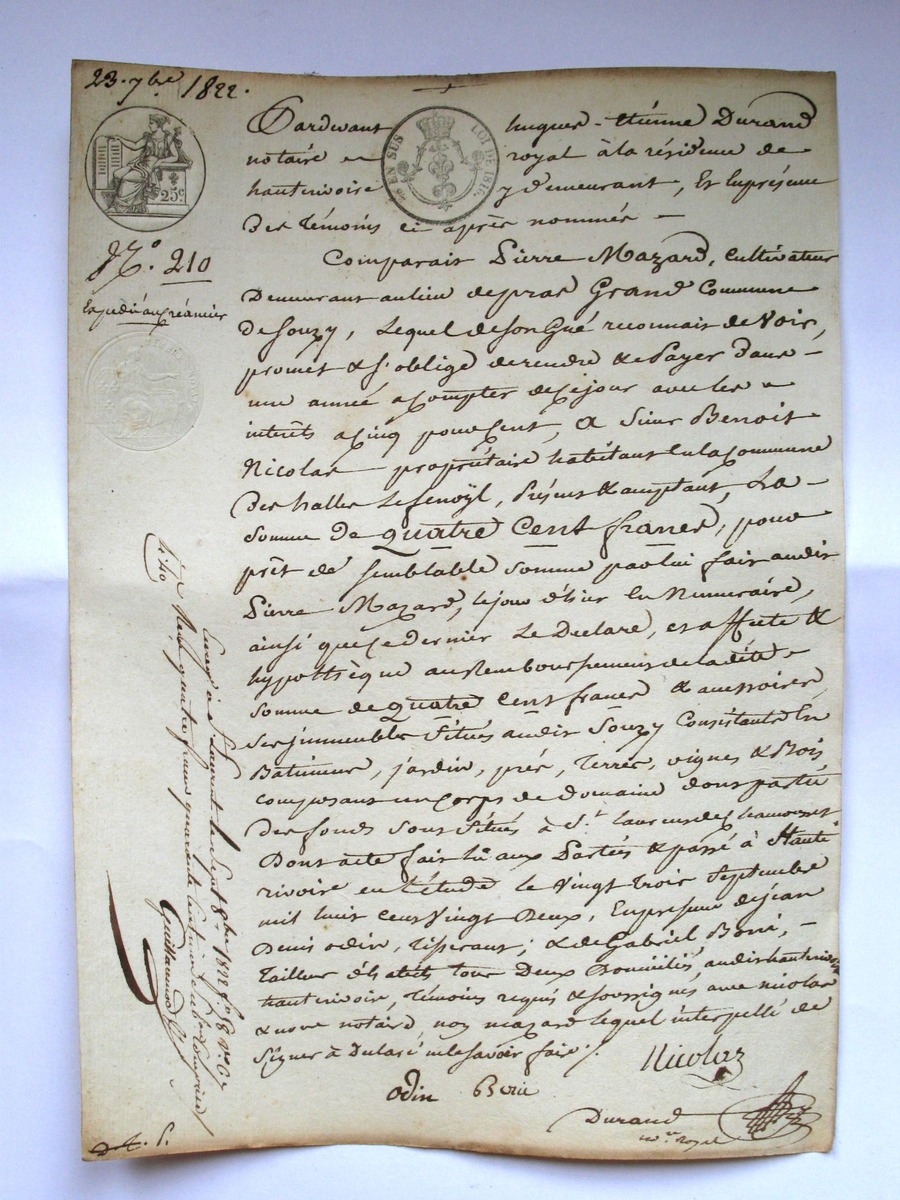 23. 7bre 1822.
25c
EN SUS
LOI DE 1816.
No. 210
Expedié au créancier
Pardevant hugues-étiénne Durand
notaire royal à la résidence de
hauterivoire y demeurant, Et En présence
Des témoins ci après nommés
Comparait Pierre Mazard, cultivateur
Demeurant au lieu de pras Grand Commune
De Souzy, Lequel de son Gré reconnait devoir,
promet & s'oblige de rendre & de Payer Dans
une année a Compter de ce jour avec les
intérêts a cinq pour cent, a Sieur Benoit
Nicolas propriétaire habitant En la Commune
Des halles Lefenoÿl, Présent & acceptant, La
Somme De quatre Cent francs, pour
prêt de Semblable Somme par lui fait audit
Pierre Mazard, le jour d'hier En Numeraire,
ainsi que ce dernier Le Déclare, et affecte &
hypothèque au Remboursement de la dite
Somme de quatre Cent francs & accessoires
Ses immeubles Situés audit Souzy Consistants En
Batiment, jardin, prés, Terres, vignes & Bois
composant un corps de Domaine dont partie
Des fonds Sont Situés à St. laurent de chamousset
Dont acte fait lû aux Parties & passé à Haute
rivoire en l'étude le Vingt Trois Septembre
mil huit Cent Vingt Deux, En présence de jean
Denis odin, tisserant; & de Gabriel Borie,
Tailleur d'habits tous Deux Domiciliés audit
hauterivoire, témoins requis & soussignés avec nicolas
& nous notaire, non mazard lequel interpellé de
Signer à Déclaré ne le savoir faire ./.
Nicolas
odin Borie
Durand
nre royal
Enreg. à St Laurent le Sept 8bre 1822 fo 8
Reçu quatre francs quarante Centimes
Guillaumod